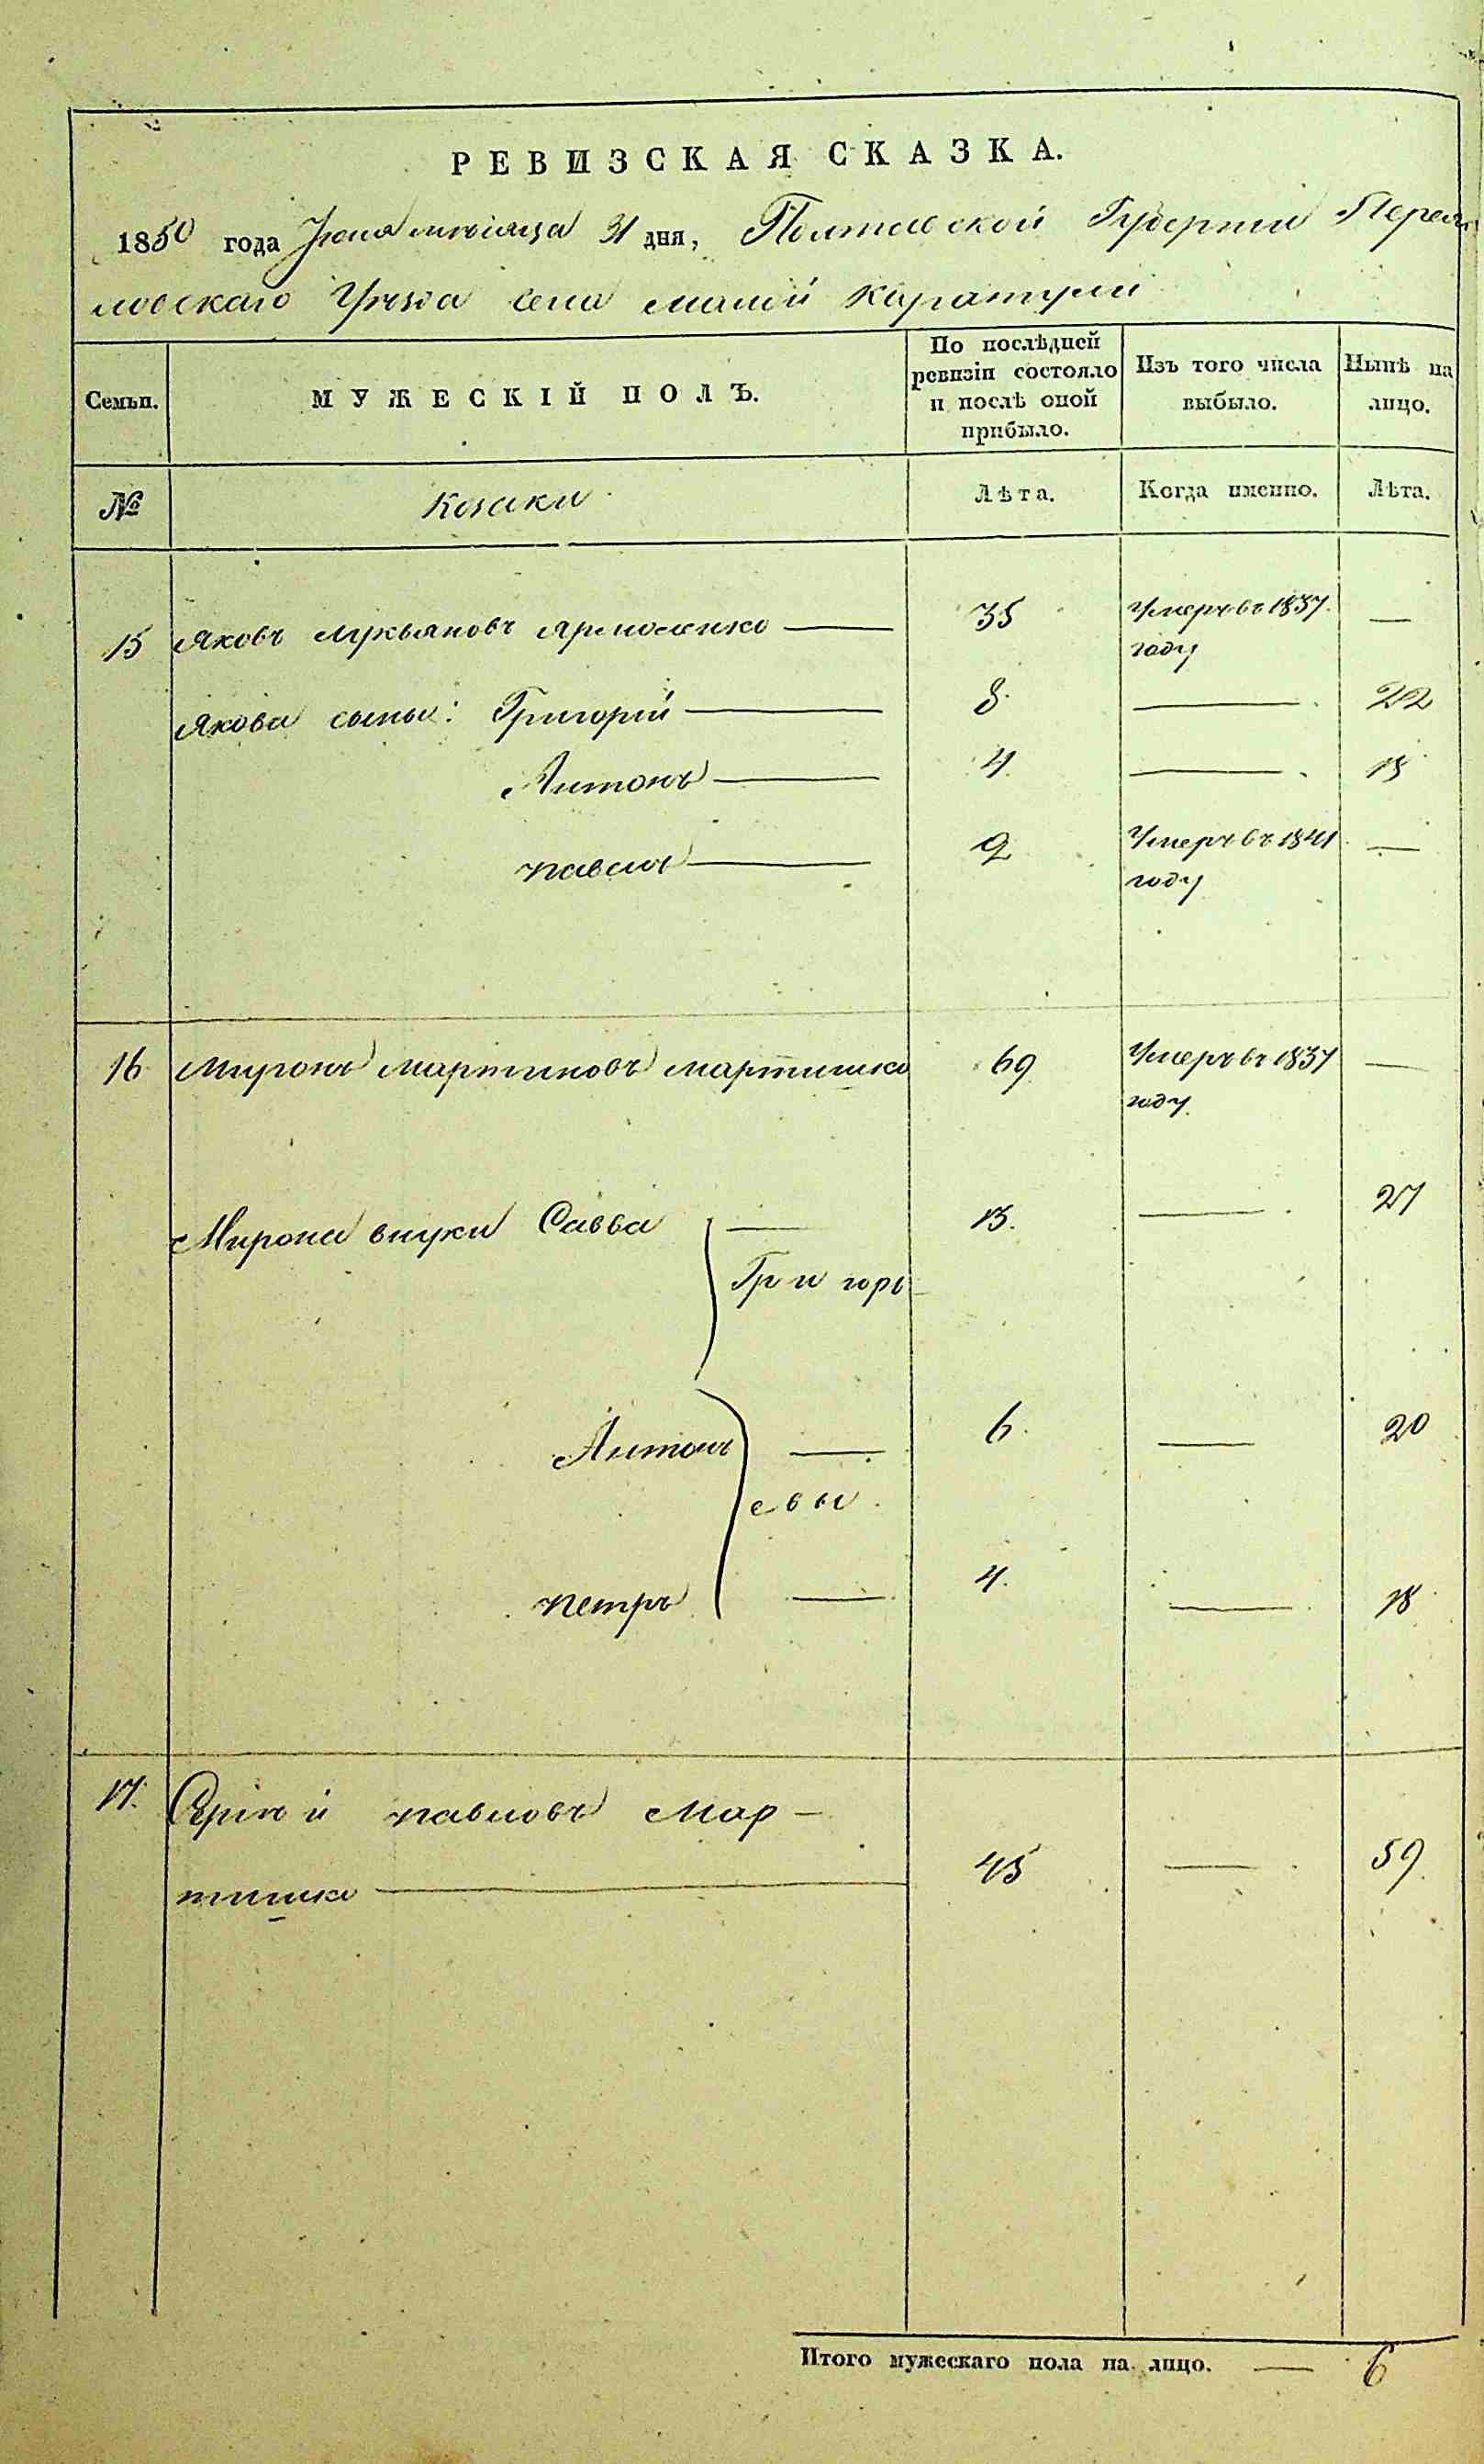 РЕВИЗСКАЯ СКАЗКА.
1850 года Іюня мѣсяца 31 дня, Полтавской Губерніи Перея
словскаго Уѣзда села малой Каратули
Семьи.
МУЖЕСКІЙ ПОЛЪ.
По послѣдней ревизіи состояло и послѣ оной прибыло.
Изъ того числа выбыло.
Нынѣ на лицо.
№
Козаки
Лѣта.
Когда именно.
Лѣта.
15 Яковъ Лукьяновъ Ярмоленко — 35 Умеръ въ 1837 году —
Якова сыны: Григорій — 8. — 22
Антонъ — 4. — 18
Павелъ — 2 Умеръ въ 1841 году —
16 Миронъ Мартиновъ Мартишко 69 Умеръ въ 1837 году —
Мирона внуки Савва — 13. — 27
Григорь
Антонъ — 6. — 20
евы
Петръ — 4. — 18
17. павловъ Мар-
тишко — 45 — 59.
Итого мужескаго пола на лицо. — 6